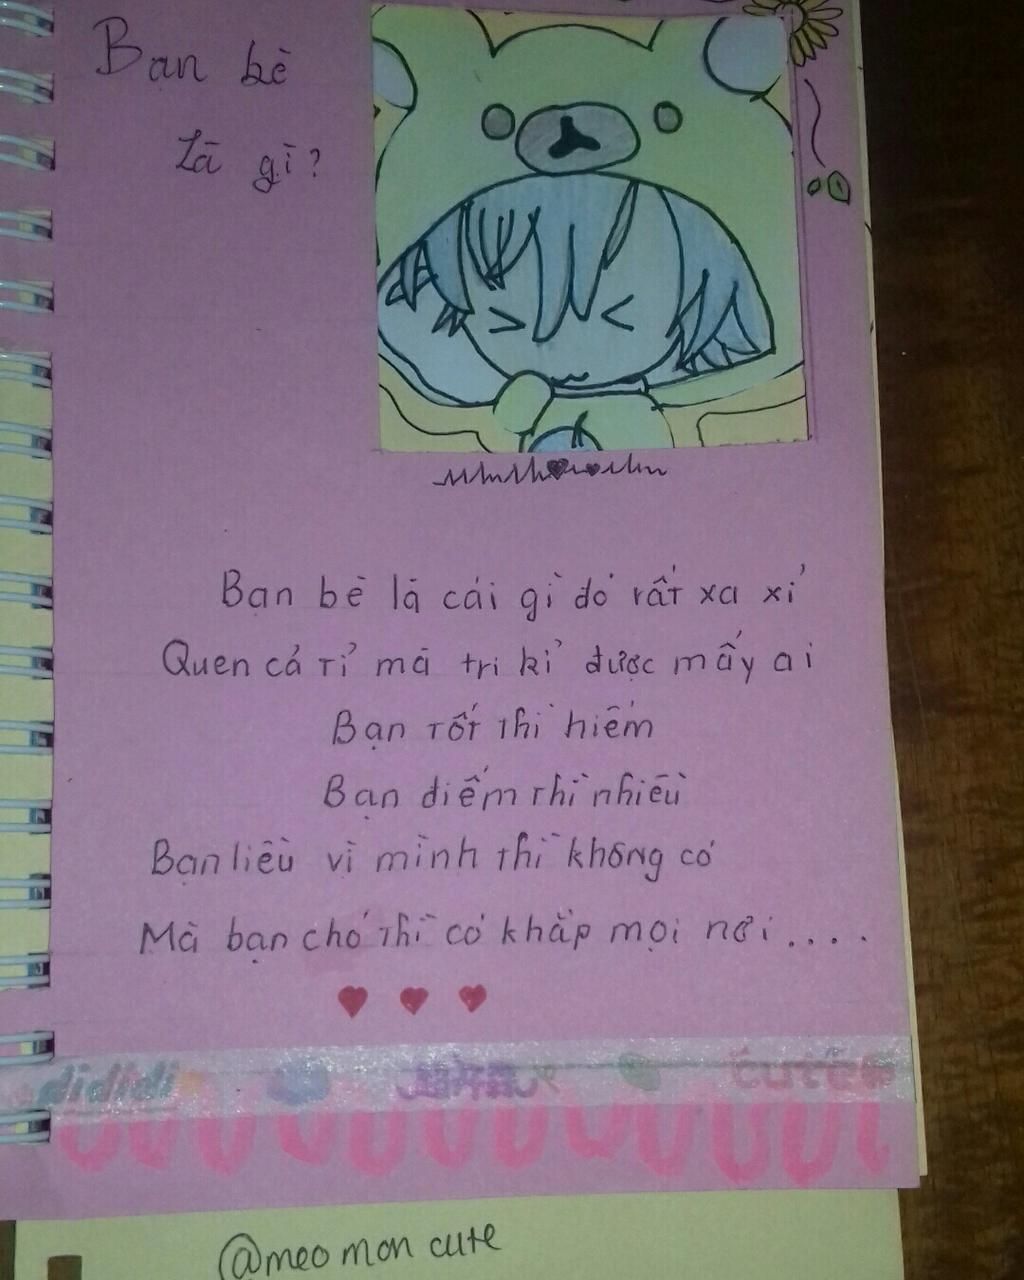 Bạn bè
Là gì?
Bạn bè là cái gì đó rất xa xỉ
Quen cả tỉ mà tri kỉ được mấy ai
Bạn tốt thì hiếm
Bạn điếm thì nhiều
Bạn liều vì mình thì không có
Mà bạn chó thì có khắp mọi nơi....
dididi
cute
@meo mon cute